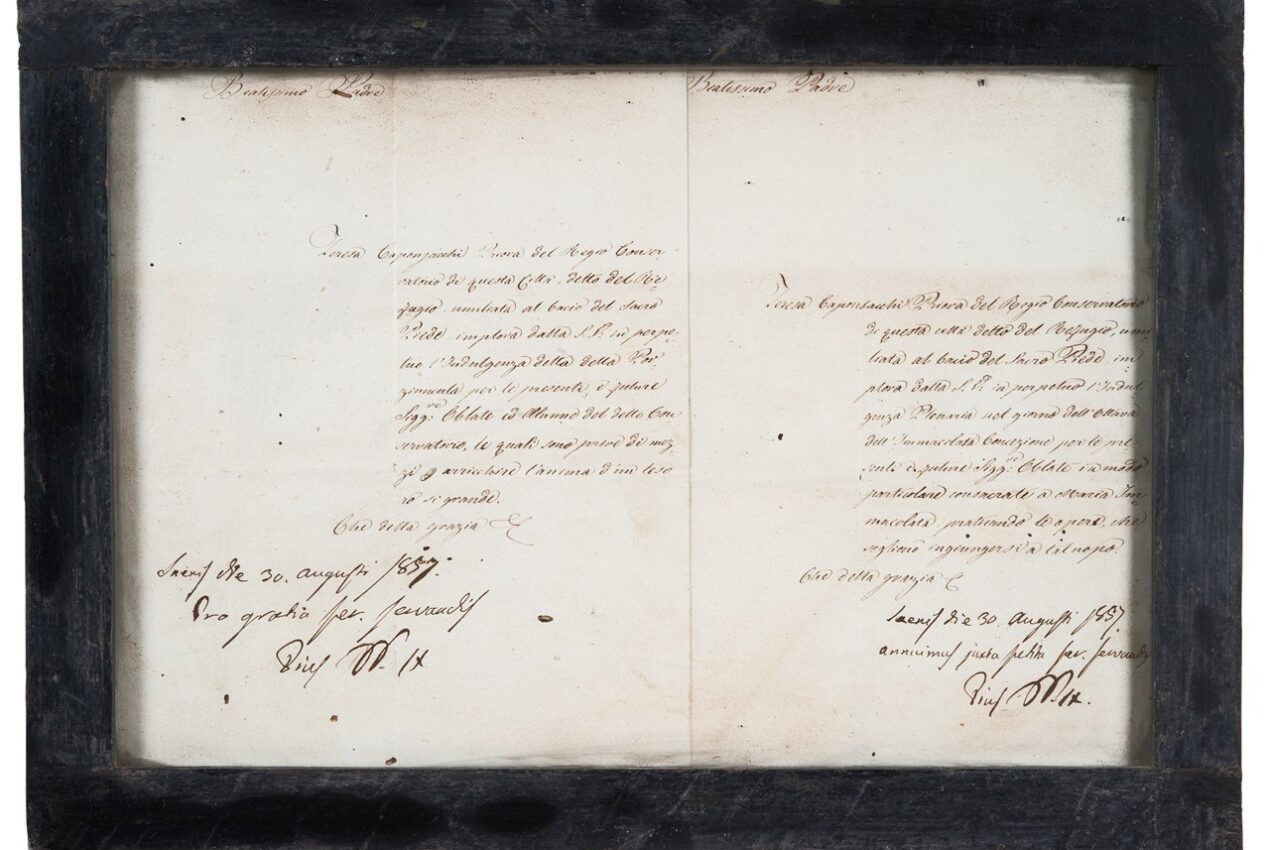 Beatissimo Padre
Teresa Caponsacchi Priora del Regio Conser-
vatorio di questa Città, detto del Re-
fugio, umiliata al bacio del Sacro
Piede implora dalla S.V. in perpe-
tuo l'Indulgenza detta della Por-
ziuncula per le presenti, e future
Sigg.re Oblate ed Alunne del detto Con-
servatorio, le quali sono prive di mez-
zi p arricchire l'anima d'un teso-
ro sì grande.
Che della grazia
Senis die 30. Augusti 1857.
Pro gratia ser. servandis
Pius PP. IX
Beatissimo Padre
Teresa Caponsacchi Priora del Regio Conservatorio
di questa città detto del Refugio, umi
liata al bacio del Sacro Piede im
plora dalla S. V. in perpetuo l'Indul
genza Plenaria nel giorno dell'Ottava
dell'Immacolata Concezione per le pre-
senti e future Sigg.re Oblate in modo
particolare consacrate a Maria Im-
macolata, praticando le opere, che
sogliono ingiungersi a tal uopo.
Che della grazia
Senis die 30. Augusti 1857
annuimus juxta petita ser. servandis
Pius PP. IX.